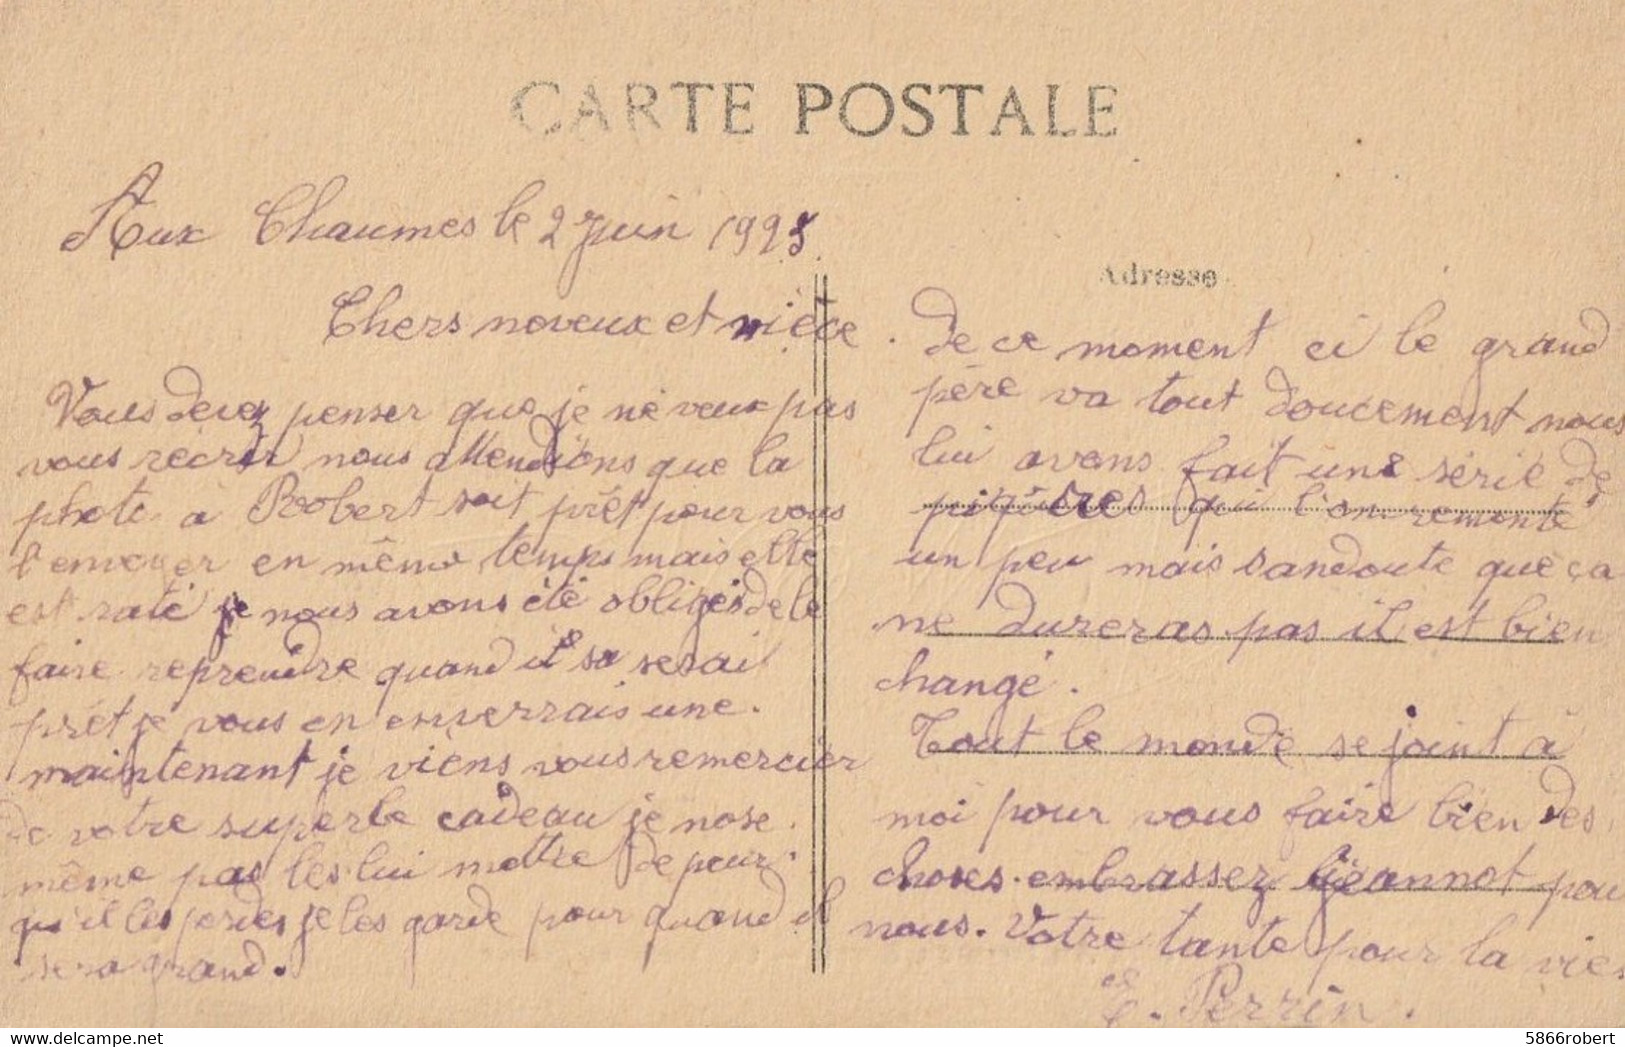 CARTE POSTALE
Aux Chaumes le 2 juin 1925
Chers neveux et nièce.
Vous devez penser que je ne veux pas
vous récrir nous attendions que la
photo à Robert soit prêt pour vous
l'envoyer en même temps mais elle
est raté je nous avons été obligés de le
faire reprendre quand il sa serait
prêt je vous en enverrais une.
maintenant je viens vous remercier
de votre superbe cadeau je nose
même pas les lui mettre de peur
qu'il les perdes je les garde pour quand il
sera grand.
Adresse
de ce moment ci le grand
père va tout doucement nous
lui avons fait une série de
piqures qui l'on remonte
un peu mais sandoute que ça
ne dureras pas il est bien
changé.
Tout le monde se joint à
moi pour vous faire bien des
choses embrassez Jeannot pou
nous. Votre tante pour la vies
E. Perrin.
5866robert